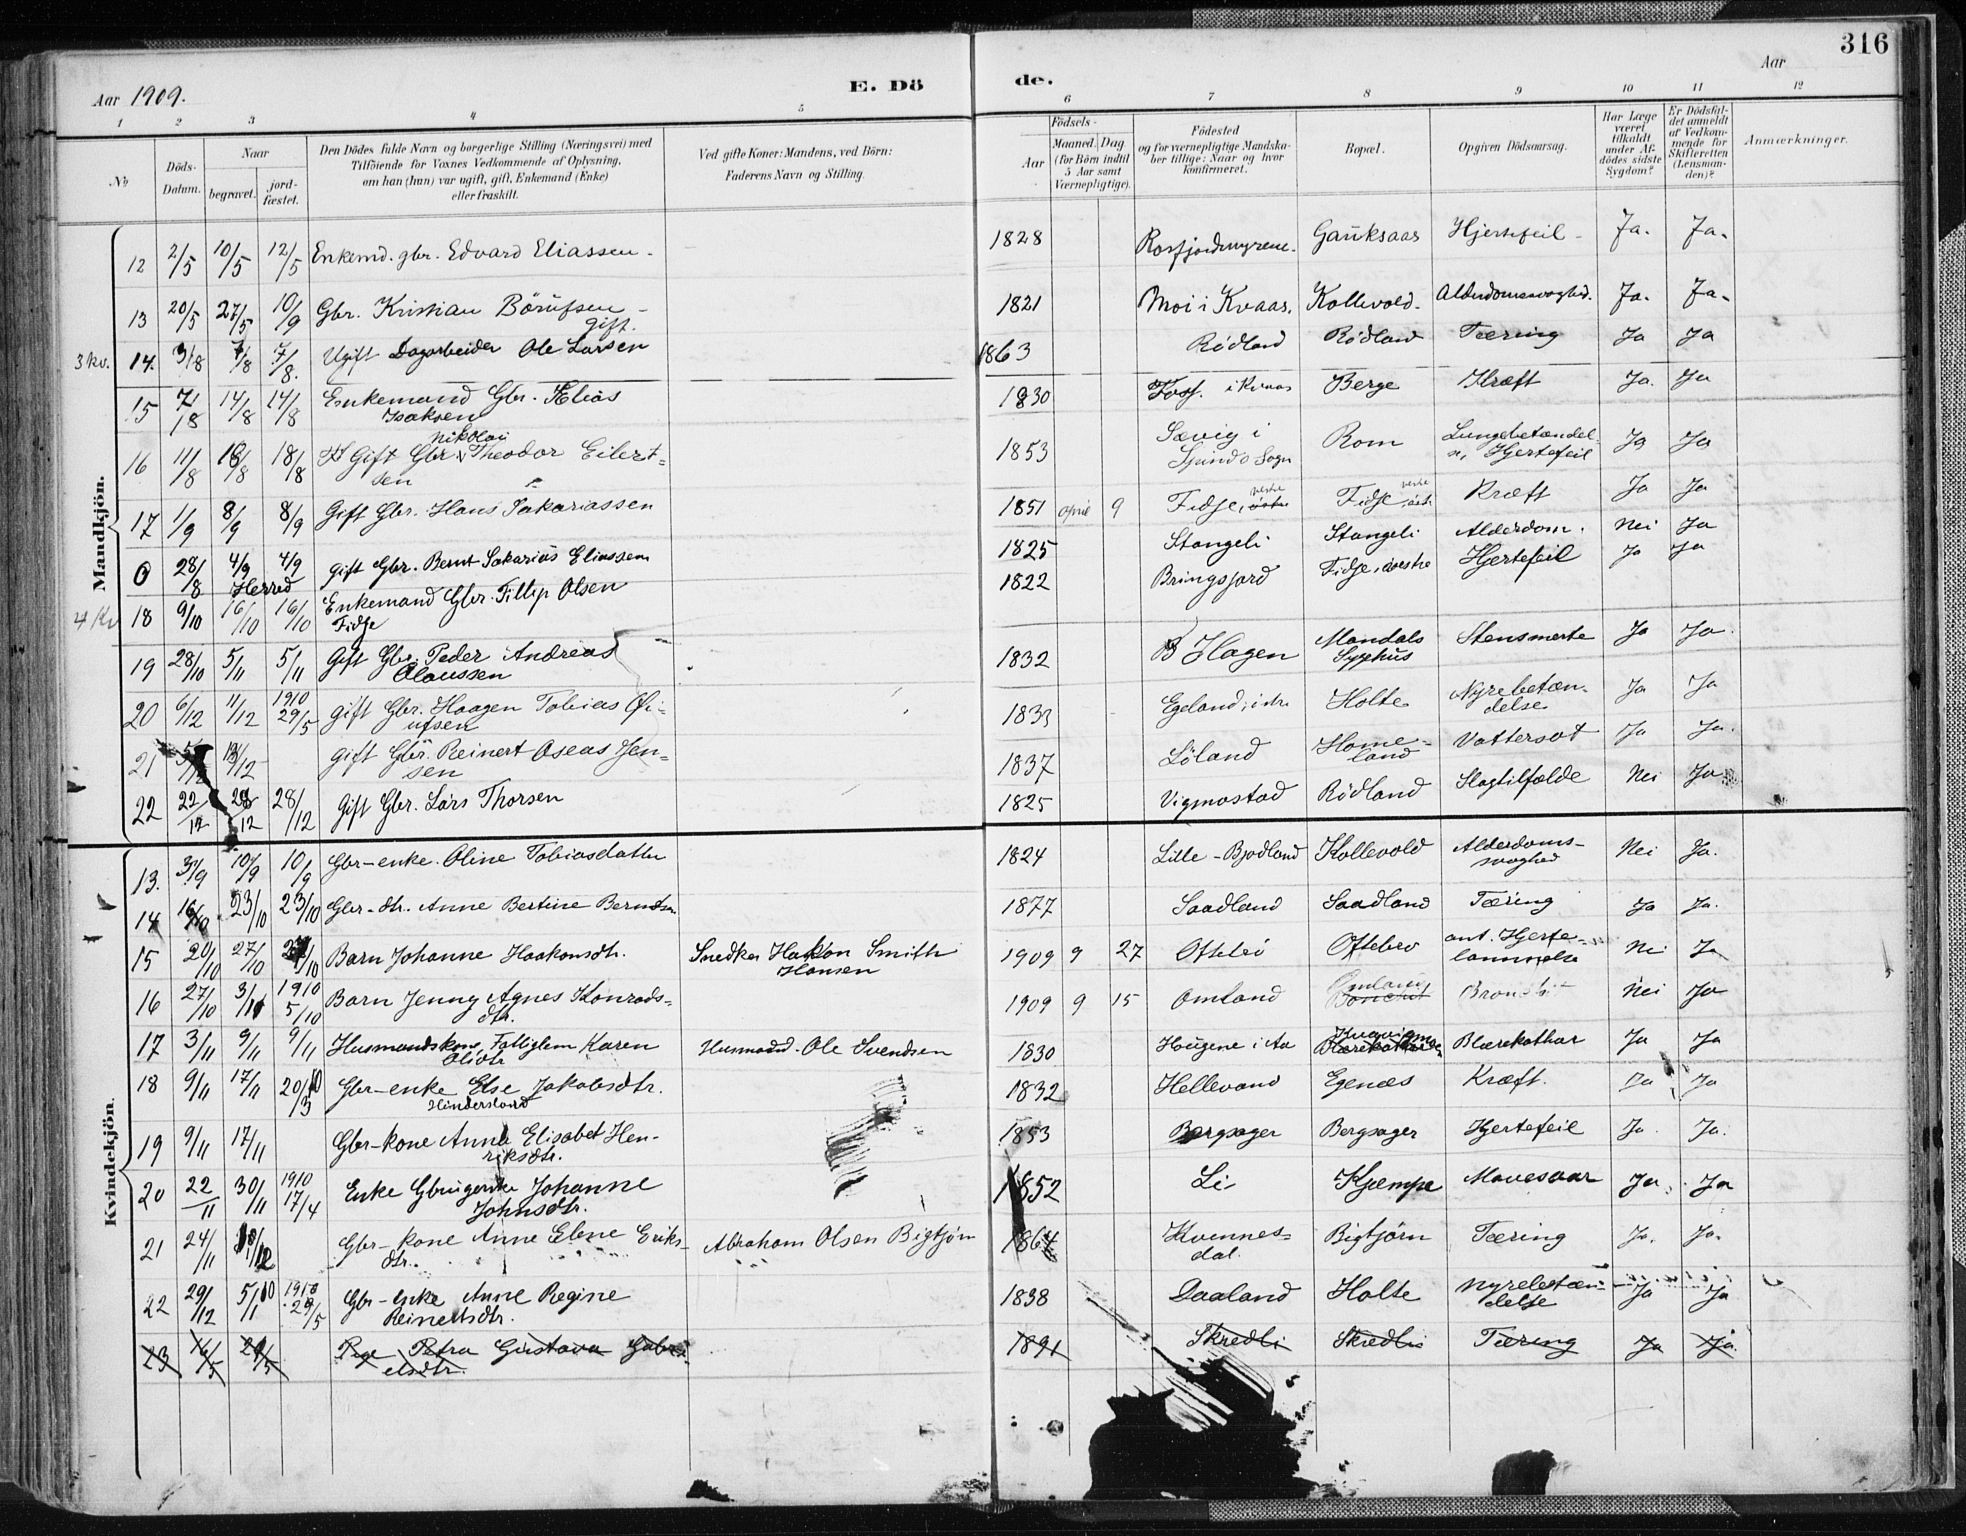 316
Aar 1909. E. Dö de. Aar
1 2 3 4 5 6 7 8 9 10 11 12
No Döds-Datum. Naar begravet. jord-fæstet. Den Dödes fulde Navn og borgerlige Stilling (Næringsvei) med Tilföiende for Voxnes Vedkommende af Oplysning, om han (hun) var ugift, gift, Enkemand (Enke) eller fraskilt. Ved gifte Koner: Mandens, ved Börn: Faderens Navn og Stilling. Födsels- Aar Maaned. Dag (for Börn indtil 5 Aar samt Værnepligtige). Födested og for værnepligtige Mandska-ber tillige: Naar og hvor konfirmeret. Bopæl. Opgiven Dödsaarsag. Har Læge været tilkaldt under Af-dödes sidste Sygdom? Er Dödsfal-det anmeldt af Vedkom-mende for Skifteretten (Lensman-den)? Anmærkninger.
Mandkjön.
12 2/5 10/5 12/5 Enkemd. gbr. Edvard Eliassen. 1828 Rosfjordmyrene. Gauksaas Hjertefeil Ja. Ja.
13 20/5 27/5 10/9 Gbr. Kristian Börufsen gift. 1821 Moi i Kvaas. Kollevold. Alderdomssvaghed. Ja. Ja.
3 kv. 14. 3/8 7/8 7/8. Ugift Dagarbeider Ole Larsen 1863 Rödland Rödland Tæring Ja Ja
15 7/8 14/8 14/8 Enkemand Gbr. Elias Isaksen 1830 i Kvaas Berge Kræft Ja. Ja
16 11/8 18/8 18/8 Gift Gbr. Nikolai Theodor Eilert=sen 1853 Sævig i Spinds Sogn Rom Lungebetændel. Hjertefeil Ja Ja
17 1/9 8/9 8/9 Gift Gbr. Hans Sakariassen 1851 April 9 Fidje, vestre Fidje vestre Kræft Ja Ja
0 28/8 4/9 4/9 Herred Gift Gbr. Bernt Sakarias Eliassen 1825 Stangeli Stangeli Alderdom. Nei Ja
4 Kv 18 9/10 16/10 16/10 Enkemand Gbr. Fillip Olsen Fidje 1822 Bringsjord Fidje, vestre Hjertefeil Ja Ja
19 28/10 5/11 5/11 Gift Gbr. Peder Andreas Olaussen 1832 Hagen Mandals Sygehus Stensmerte Ja Ja.
20 6/12 11/12 1910 29/5 Gift Gbr. Haagen Tobias Ør-ufsen 1833 Egeland, i dr. Holte Nyrebetæn-delse Ja Ja
21 13/12 Gift Gbr. Reinert Oseas Jen=sen 1837 Löland Home-land Vattersot Ja Ja.
22 22/12 28/12 28/12 Gift Gbr. Lars Thorsen 1825 Vigmostad Rödland Slagtilfælde Nei Ja
Kvindekjön.
13. 3/9 10/9 10/9 Gbr-enke. Oline Tobiasdatter 1824 Lille-Bjodland Kollevold Alderdoms-svaghed Nei Ja.
14 16/10 23/10 23/10 Gbr-dtr. Anne Bertine Berntsen 1877 Saadland Saadland Tæring Ja Ja.
15 20/10 27/10 27/10 Barn Johanne Haakonsdtr. Snedker Haakon Smith Hansen 1909 9 27 Oftebrö Oftebro ant. Hjerte-lammelse Nei Ja
16 27/10 3/11 1910 5/10 Barn Jenny Agnes Konrads=dtr. 1909 9 15 Omland Omland Bronchit Nei Ja
17 3/11 9/11 9/11 Husmandskone, Fattiglem Karen Olidtr. Husmand. Ole Svendsen 1830 Haugene i Aa Blærekathar Ja Ja
18 9/11 17/11 20/3 10 Gbr-enke Else Jakobsdtr. Hindersland 1832 Hellevand Egenæs Kræft. Ja Ja
19 9/11 17/11 Gbr-kone Anna Elisabet Hen-riksdtr. 1853 Bergsager Bergsager Hjertefeil Ja. Ja.
20 22/11 30/11 1910 17/4 Enke Johanne Johnsdtr. 1852 Li Kjæmpe Mavesaar Ja. Ja
21 24/11 Gbr-kone Anne Elene Eriks-dtr. Abraham Olsen Bigtjörn 1864 Kvennes-dal. Bigtjörn Tæring Ja. Ja.
22 29/12 5/1 10 1910 29/5 Gbr-enke Anne Regine Reinertsdtr. 1838 Daaland Holte Nyrebetæn-delse Ja Ja
23 16/5 Pige Petra Gustava Gabri-elsdtr. 1891 Skredli Skredli Tæring Ja Ja